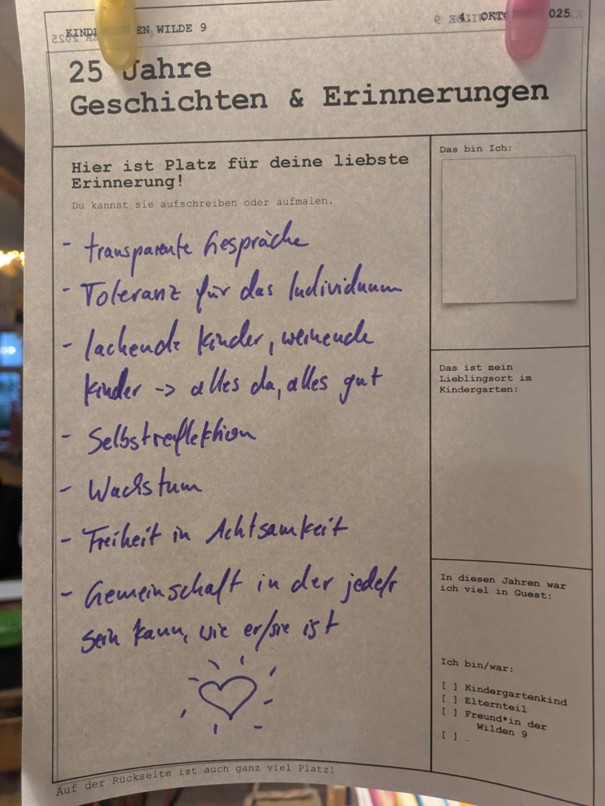 WILDE 9
25 Jahre
Geschichten & Erinnerungen
Hier ist Platz für deine liebste
Erinnerung!
Du kannst sie aufschreiben oder aufmalen.
- transparente Gespräche
- Toleranz für das Individuum
- lachende Kinder, weinende
Kinder -> alles da, alles gut
- Selbstreflektion
- Wachstum
- Freiheit in Achtsamkeit
- Gemeinschaft in der jede/r
sein kann, wie er/sie ist
Das bin Ich:
Das ist mein
Lieblingsort im
Kindergarten:
In diesen Jahren war
ich viel in Guest:
Ich bin/war:
[ ] Kindergartenkind
[ ] Elternteil
[ ] Freund*in der
Wilden 9
[ ]
Auf der Rückseite ist auch ganz viel Platz!